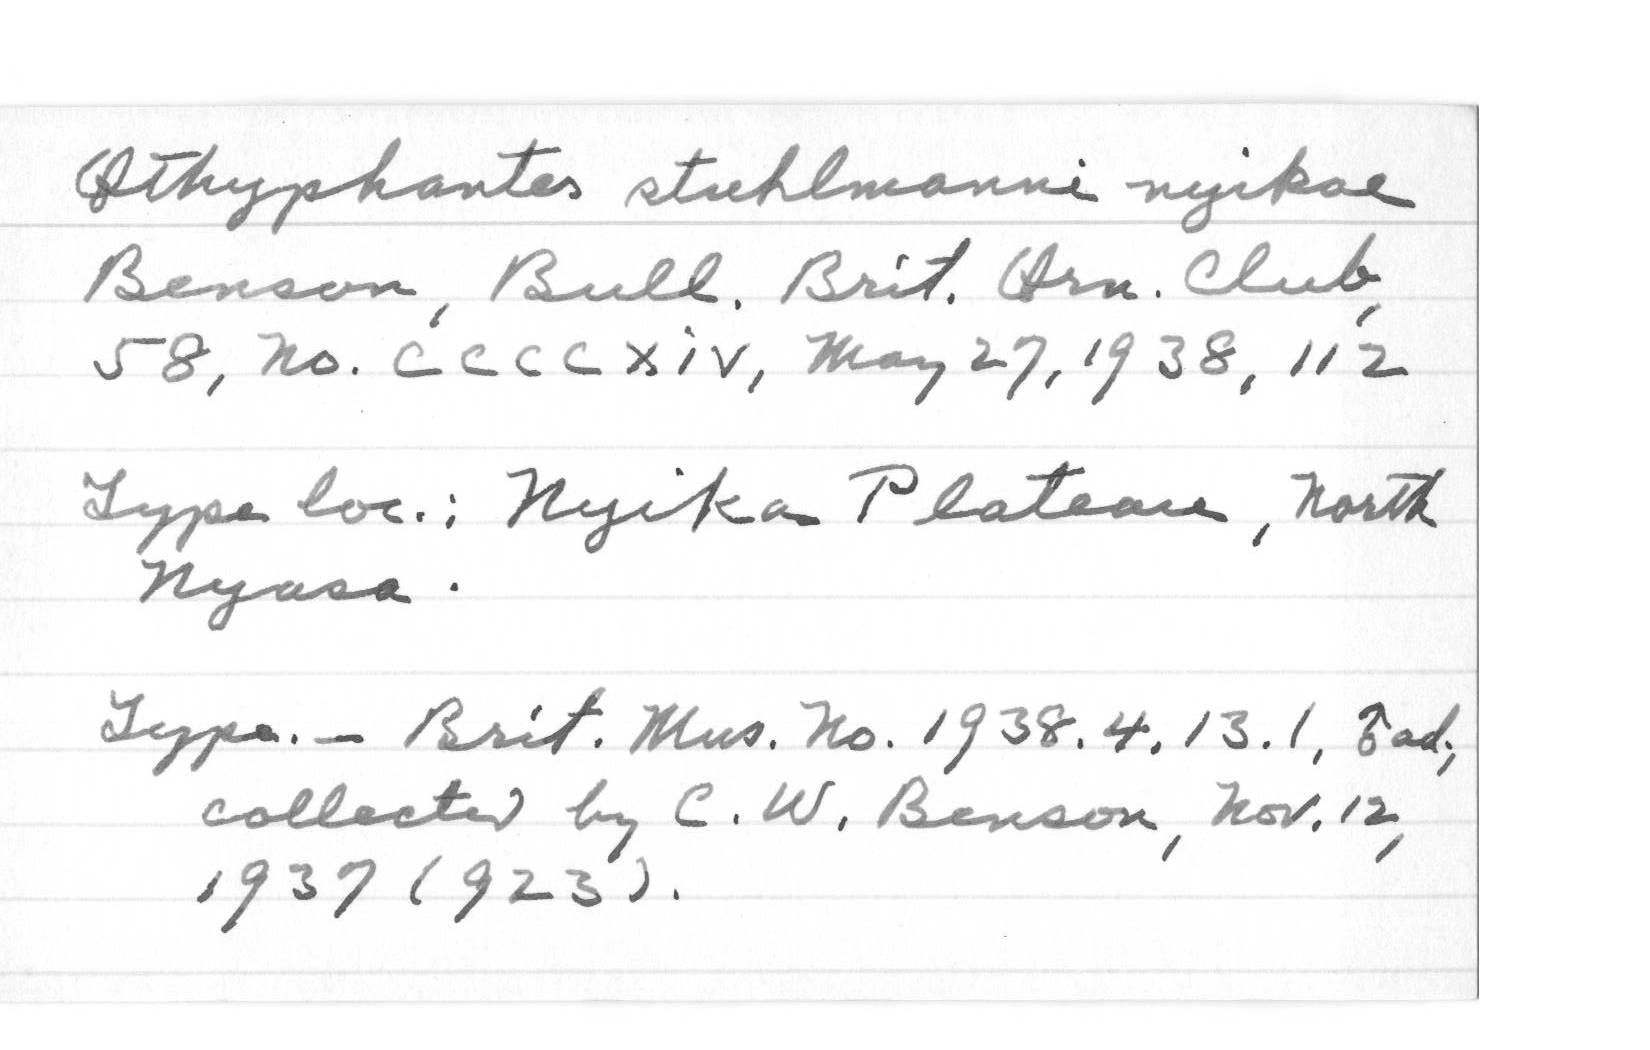 Othyphantes stuhlmanni nyikae
Benson, Bull. Brit. Orn. Club,
58, No. CCCCXIV, May 27, 1938, 112
Type loc.: Nyika Plateau, North
Nyasa.
Type. — Brit. Mus. No. 1938.4.13.1, ♂ ad.,
collected by C. W. Benson, Nov. 12,
1937 (923).